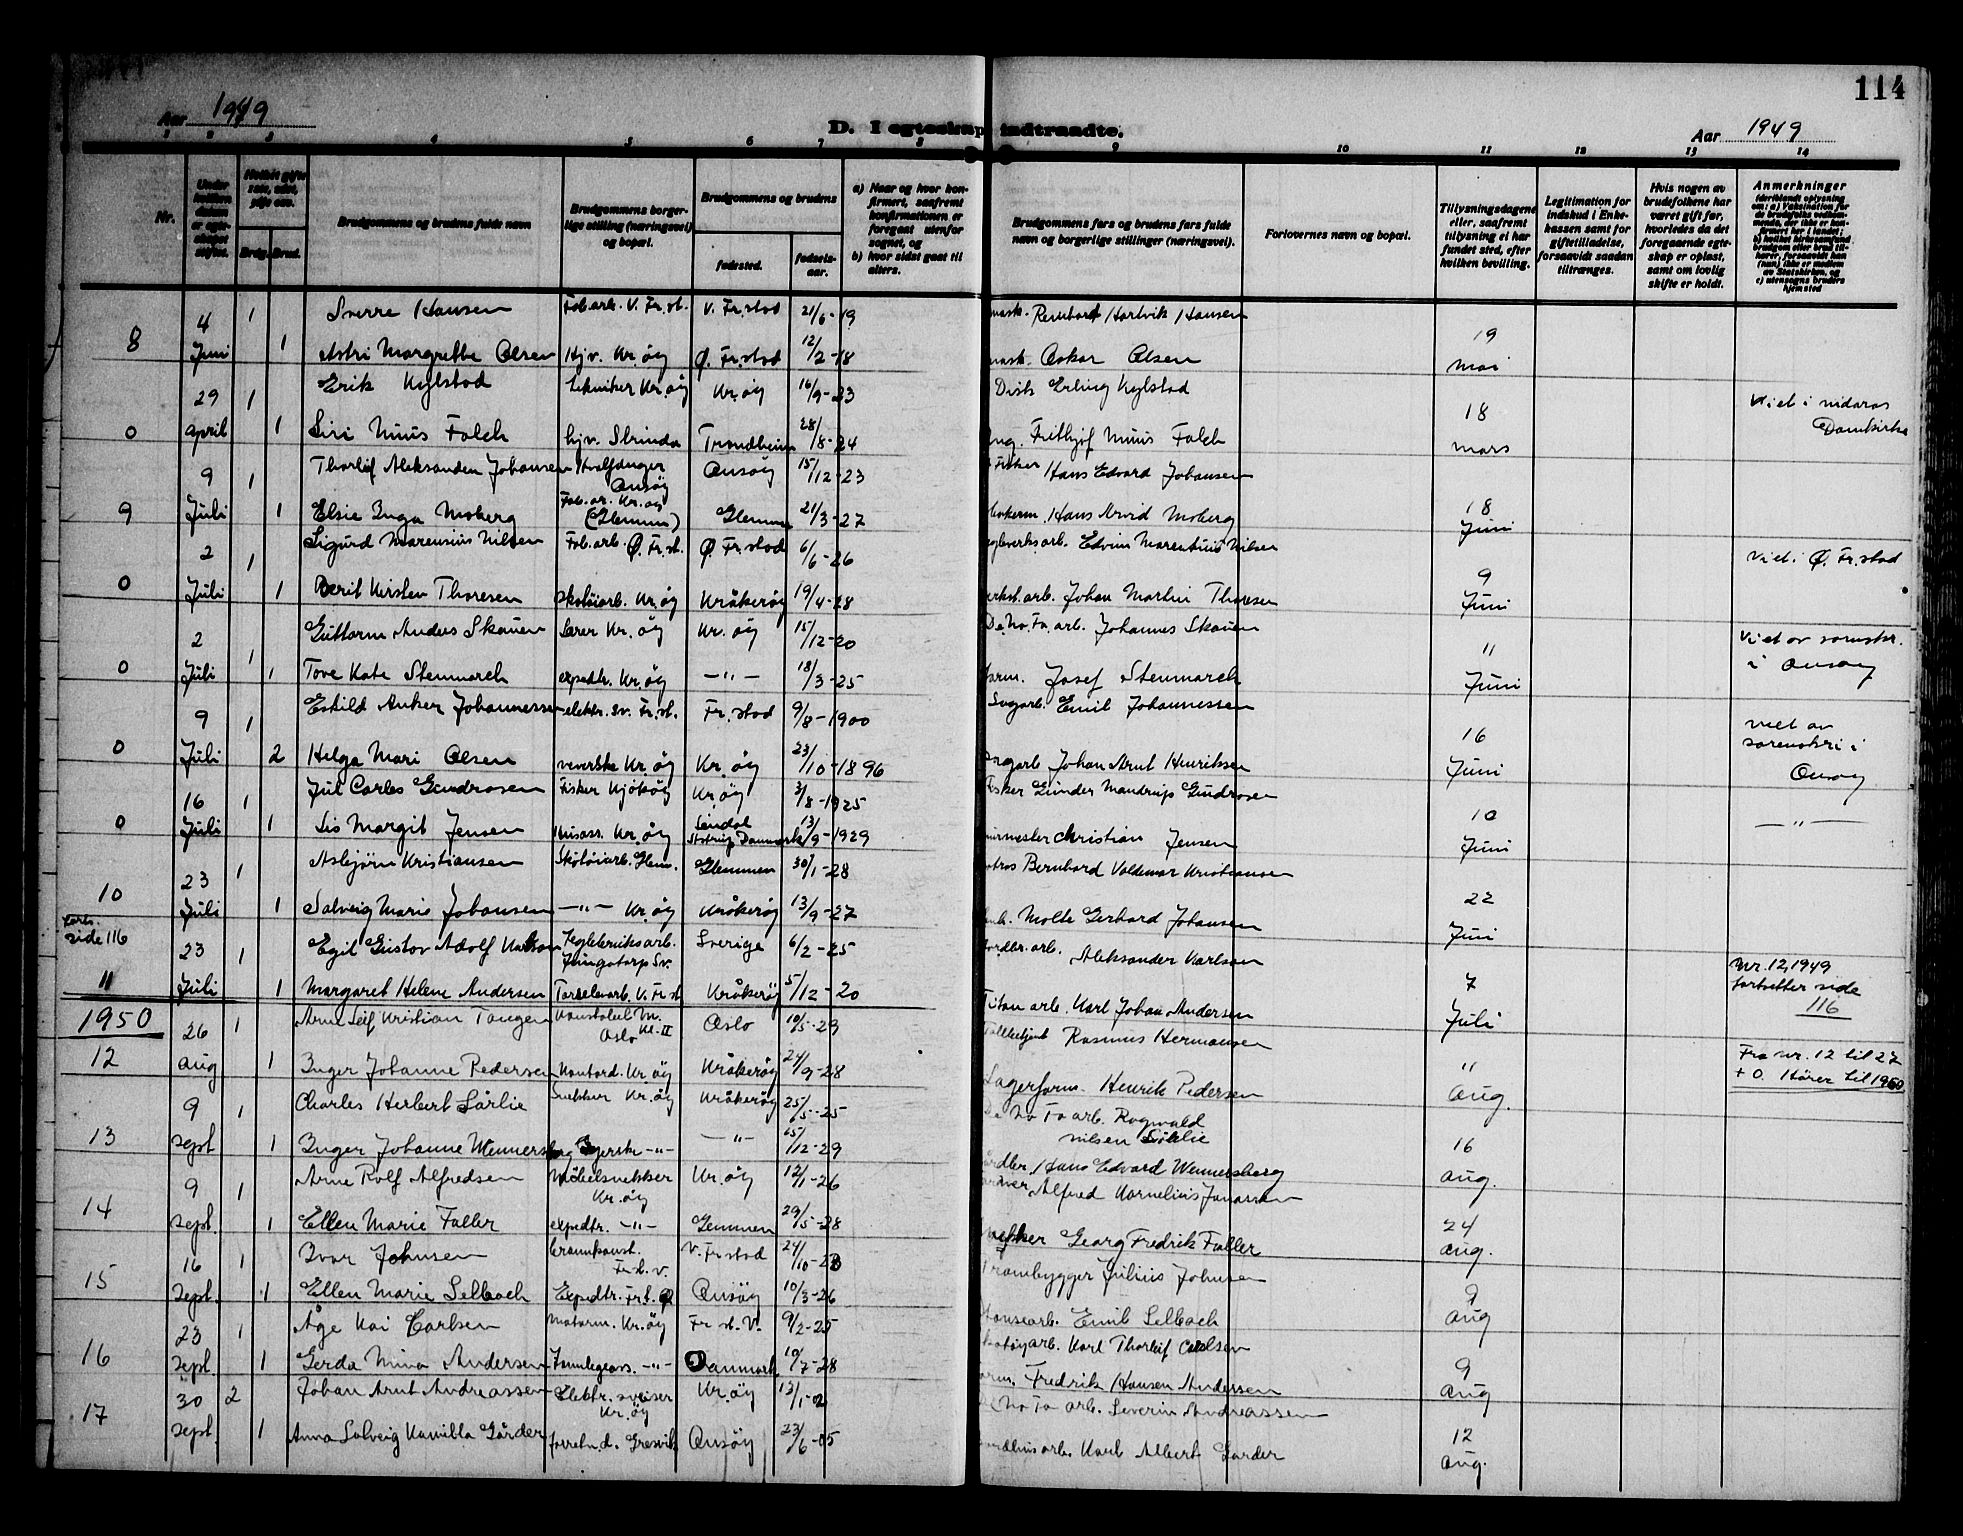 114
Aar 1949
D. Iegteskap indtraadte.
Aar 1949
1 2 3 4 5 6 7 8 9 10 11 12 13 14
Nr.
Brudg. Brud.
Brudgommens og brudens fulde navn
Brudgommens borger-
lige stilling (næringsvei)
og bopæl.
Brudgommens og brudens
fødested.
fødsels-
aar.
a) Naar og hvor kon-
firmert, saafremt
konfirmationen er
foregaat utenfor
sognet, og
b) hvor sidst gaat til
alters.
Brudgommens fars og brudens fars fulde
navn og borgerlige stillinger (næringsvei).
Forlovernes navn og bopæl.
Tillysningsdagene
eller, saafremt
tillysning ei har
fundet sted, efter
hvilken bevilling.
Legitimation for
indskud i Enke-
kassen samt for
giftetilladelse,
forsaavidt saadan
tiltrænges.
Hvis nogen av
brudefolkene har
været gift før,
hvorledes da det
foregaaende egte-
skap er opløst,
samt om lovlig
skifte er holdt.
Anmerkninger
4 1 Sverre Hansen Fab.arb. V. Fr.st. V. Fr.stad 21/6-19 Hartvik Hansen
8 Juni 1 Astri Margrethe Olsen Hjv. Kr.øy Ø. Fr.stad 12/2-18 Oskar Olsen 19 mai
29 1 Erik Kylstad tekniker Kr.øy Kr.øy 16/9-23 Disk Erling Kylstad
0 april 1 Siri Muus Falch hjv. Strinda Trondheim 28/8-24 ng. Frithjof Muus Falch 18 mars Viet i nidaros Domkirke
9 1 Thorleif Aleksander Johansen Hvalfanger Onsøy Onsøy 15/12-23 Fisker Hans Edvard Johansen
9 Juli 1 Elsie Inga Moberg Fab.ar. Kr.øy (Glemmen) Glemmen 21/3-27 Hans Arvid Moberg 18 Juni
2 1 Sigurd Marensius Nilsen Fab.arb. Ø. Fr.st. Ø. Fr.stad 6/6-26 eglverksarb. Edvin Marentius Nilsen
0 Juli 1 Berit Kirsten Thoresen skotøiarb. Kr.øy Kråkerøy 19/4-28 erkst.arb. Johan Martin Thoresen 9 Juni Viet i Ø. Fr.stad
2 1 Guttorm Anders Skauen Lærer Kr.øy Kr.øy 15/12-20 De.No.Fa.arb. Johannes Skauen
0 Juli 1 Tove Kate Stenmarch expedtr. Kr.øy -"- 18/3-25 form. Josef Stenmarch 11 Juni Viet av sorenskr. i Onsøy
9 1 Eskild Anker Johannessen elektr.sv. Fr.st. Fr.stad 9/8-1900 Sagarb. Emil Johannessen
0 Juli 2 Helga Mari Olsen veverske Kr.øy Kr.øy 23/10-1896 sagarb Johan Arnt Henriksen 16 Juni viet av sorenskri i Onsøy
16 1 Jul Carles Gundrosen Fisker Kjøkøy Kr.øy 3/8-1925 Fisker Gunder Mandrup Gundrosen
0 Juli 1 Lis Margit Jensen Husass. Kr.øy Danmark 13/9-1929 Christian Jensen 10 Juni -"-
23 1 Asbjørn Kristiansen Skotøiarb. Glem. Glemmen 30/1-28 Bernhard Valdemar Kristiansen
10 Juli 1 Solveig Marie Johansen -"- Kr.øy Kråkerøy 13/9-27 Molte Gerhard Johansen 22 Juni
Forts. side 116
23 1 Egil Gustov Adolf Karlson Teglbruksarb. Ljungstorp Sv. Sverige 6/2-25 jordbr.arb. Aleksander Karlson
11 Juli 1 Margaret Helene Andersen V. Fr.st Kråkerøy 5/12-20 Titan arb. Karl Johan Andersen 7 Juli Nr. 12, 1949 fortsetter side 116
1950
26 1 Arne Leif Kristian Tangen Konstabel kl. II Oslo Oslo 10/5-29 Rasmus Hermansen
12 aug 1 Inger Johanne Pedersen Kontord. Kr.øy Kråkerøy 24/9-28 Lagerform. Henrik Pedersen 11 aug. Fra nr. 12 til 27 + 0. Hører til 1950
9 1 Charles Herbert Sørlie Snekker Kr.øy Kråkerøy 25/5-25 De No Fa arb. Ragnvald Nilsen Sørlie
13 sept 1 Inger Johanne Wennersberg Syerske -"- -"- 15/12-29 Hans Edvard Wennersberg 16 aug.
9 1 Arne Rolf Alfredsen Møbelsnekker Kr.øy Kr.øy 12/1-26 Alfred Kornelius
14 sept. 1 Ellen Marie Faller expedtr. -"- Gemmen 29/5-28 Georg Fredrik Faller 24 aug.
16 1 Ivar Johnsen Fr.st. V. V. Frstad 24/10-23 Prambygger Julius Johnsen
15 sept. 1 Ellen Marie Selbach Expedtr. Fr.t. Ø Onsøy 10/3-26 Emil Selbach 9 aug
23 1 Åge Kai Carlsen Motorm. Kr.øy Fr st. V. 9/2-25 Karl Thorleif Carlsen
16 sept. 1 Gerda Mina Andersen -"- Danmark 10/7-28 Fredrik Hansen Andersen 9 aug
30 2 Johan Arnt Andreassen Elektr. sveiser Kr.øy Kr.øy 13/1-02 De No Fa arb. Severin Andreassen
17 sept. 1 Anna Solveig Kamilla Gårder forretn.d. Gresvik Onsøy 23/6-05 Karl Albert Gårder 12 aug.